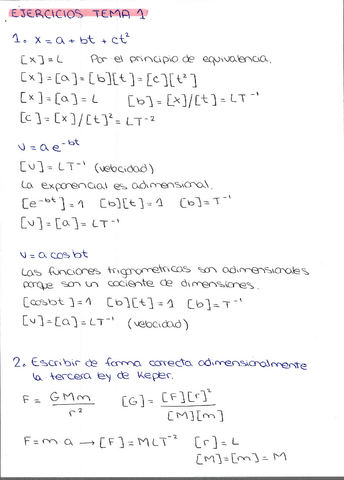 EJERCICIOS TEMA 1
1. x = a + bt + ct²
[x] = L Por el principio de equivalencia.
[x] = [a] = [b][t] = [c][t²]
[x] = [a] = L [b] = [x]/[t] = LT⁻¹
[c] = [x]/[t]² = LT⁻²
v = a e⁻ᵇᵗ
[v] = LT⁻¹ (velocidad)
La exponencial es adimensional.
[e⁻ᵇᵗ] = 1 [b][t] = 1 [b] = T⁻¹
[v] = [a] = LT⁻¹
v = a cos bt
Las funciones trigonométricas son adimensionales
porque son un cociente de dimensiones.
[cos bt] = 1 [b][t] = 1 [b] = T⁻¹
[v] = [a] = LT⁻¹ (velocidad)
2. Escribir de forma correcta adimensionalmente
la tercera ley de Kepler.
F = GMm / r² [G] = [F][r]² / [M][m]
F = m a → [F] = MLT⁻² [r] = L
[M] = [m] = M